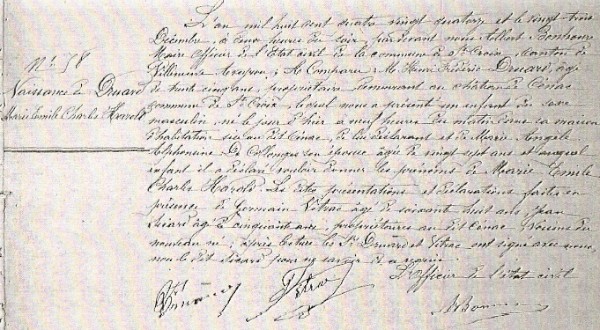 N° 58
Naissance de Druard
Marie Emile Charles Harold
L'an mil huit cent quatre vingt quatorze et le vingt trois
Décembre, à deux heures du soir, par devant nous Albert Bonhoure
Maire Officier de l'Etat civil de la commune de Ste Croix, canton de
Villeneuve Aveyron; A Comparu: M. Henri Frédéric Druard, âgé
de trente cinq ans, propriétaire demeurant au château de Cénac
commune de Ste Croix, lequel nous a présenté un enfant du sexe
masculin, né le jour d'hier à neuf heures du matin dans sa maison
d'habitation sise au dit Cénac, de lui déclarant et de Marie Angèle
Alphonsine De Collongue son épouse âgée de vingt sept ans et auquel
enfant il a déclaré vouloir donner les prénoms de Marie Emile
Charles Harold. Les dites présentations et déclarations faites en
présence de Germain Vétrac âgé de soixante huit ans Jean
âgé de cinquante ans, propriétaires au dit Cénac voisins du
nouveau né; Après lecture les Srs Druard et Vétrac ont signé avec nous,
non le dit pour ne savoir de ce requis.
L'Officier de l'état civil
Druard Vétrac